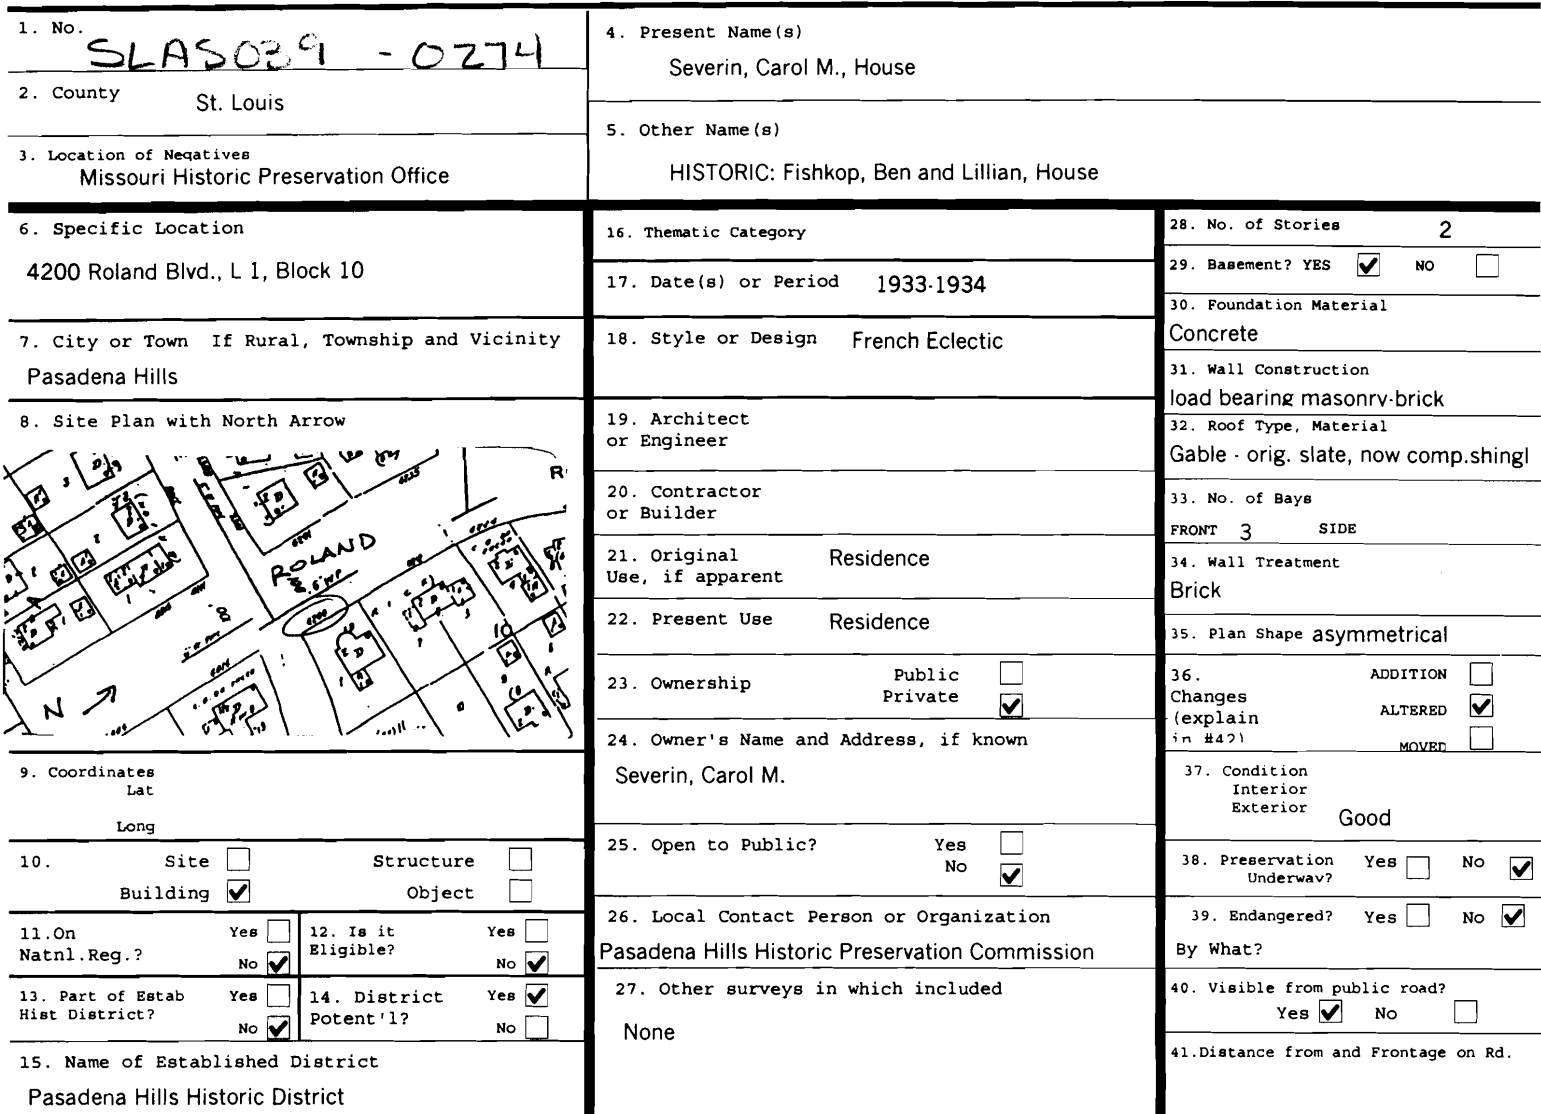 1. No.
SLAS039 - 0274
2. County
St. Louis
3. Location of Negatives
Missouri Historic Preservation Office
4. Present Name(s)
Severin, Carol M., House
5. Other Name(s)
HISTORIC: Fishkop, Ben and Lillian, House
6. Specific Location
4200 Roland Blvd., L 1, Block 10
7. City or Town If Rural, Township and Vicinity
Pasadena Hills
8. Site Plan with North Arrow
ROLAND
4200
10
N
9. Coordinates
Lat
Long
10. Site Structure
Building Object
11.On Yes
Natnl.Reg.?
No
12. Is it Yes
Eligible?
No
13. Part of Estab Yes
Hist District?
No
14. District Yes
Potent'l?
No
15. Name of Established District
Pasadena Hills Historic District
16. Thematic Category
17. Date(s) or Period 1933-1934
18. Style or Design French Eclectic
19. Architect
or Engineer
20. Contractor
or Builder
21. Original Residence
Use, if apparent
22. Present Use Residence
23. Ownership Public
Private
24. Owner's Name and Address, if known
Severin, Carol M.
25. Open to Public? Yes
No
26. Local Contact Person or Organization
Pasadena Hills Historic Preservation Commission
27. Other surveys in which included
None
28. No. of Stories 2
29. Basement? YES NO
30. Foundation Material
Concrete
31. Wall Construction
load bearing masonry-brick
32. Roof Type, Material
Gable - orig. slate, now comp.shingl
33. No. of Bays
FRONT 3 SIDE
34. Wall Treatment
Brick
35. Plan Shape asymmetrical
36. ADDITION
Changes
(explain ALTERED
in #42) MOVED
37. Condition
Interior
Exterior Good
38. Preservation Yes No
Underway?
39. Endangered? Yes No
By What?
40. Visible from public road?
Yes No
41.Distance from and Frontage on Rd.